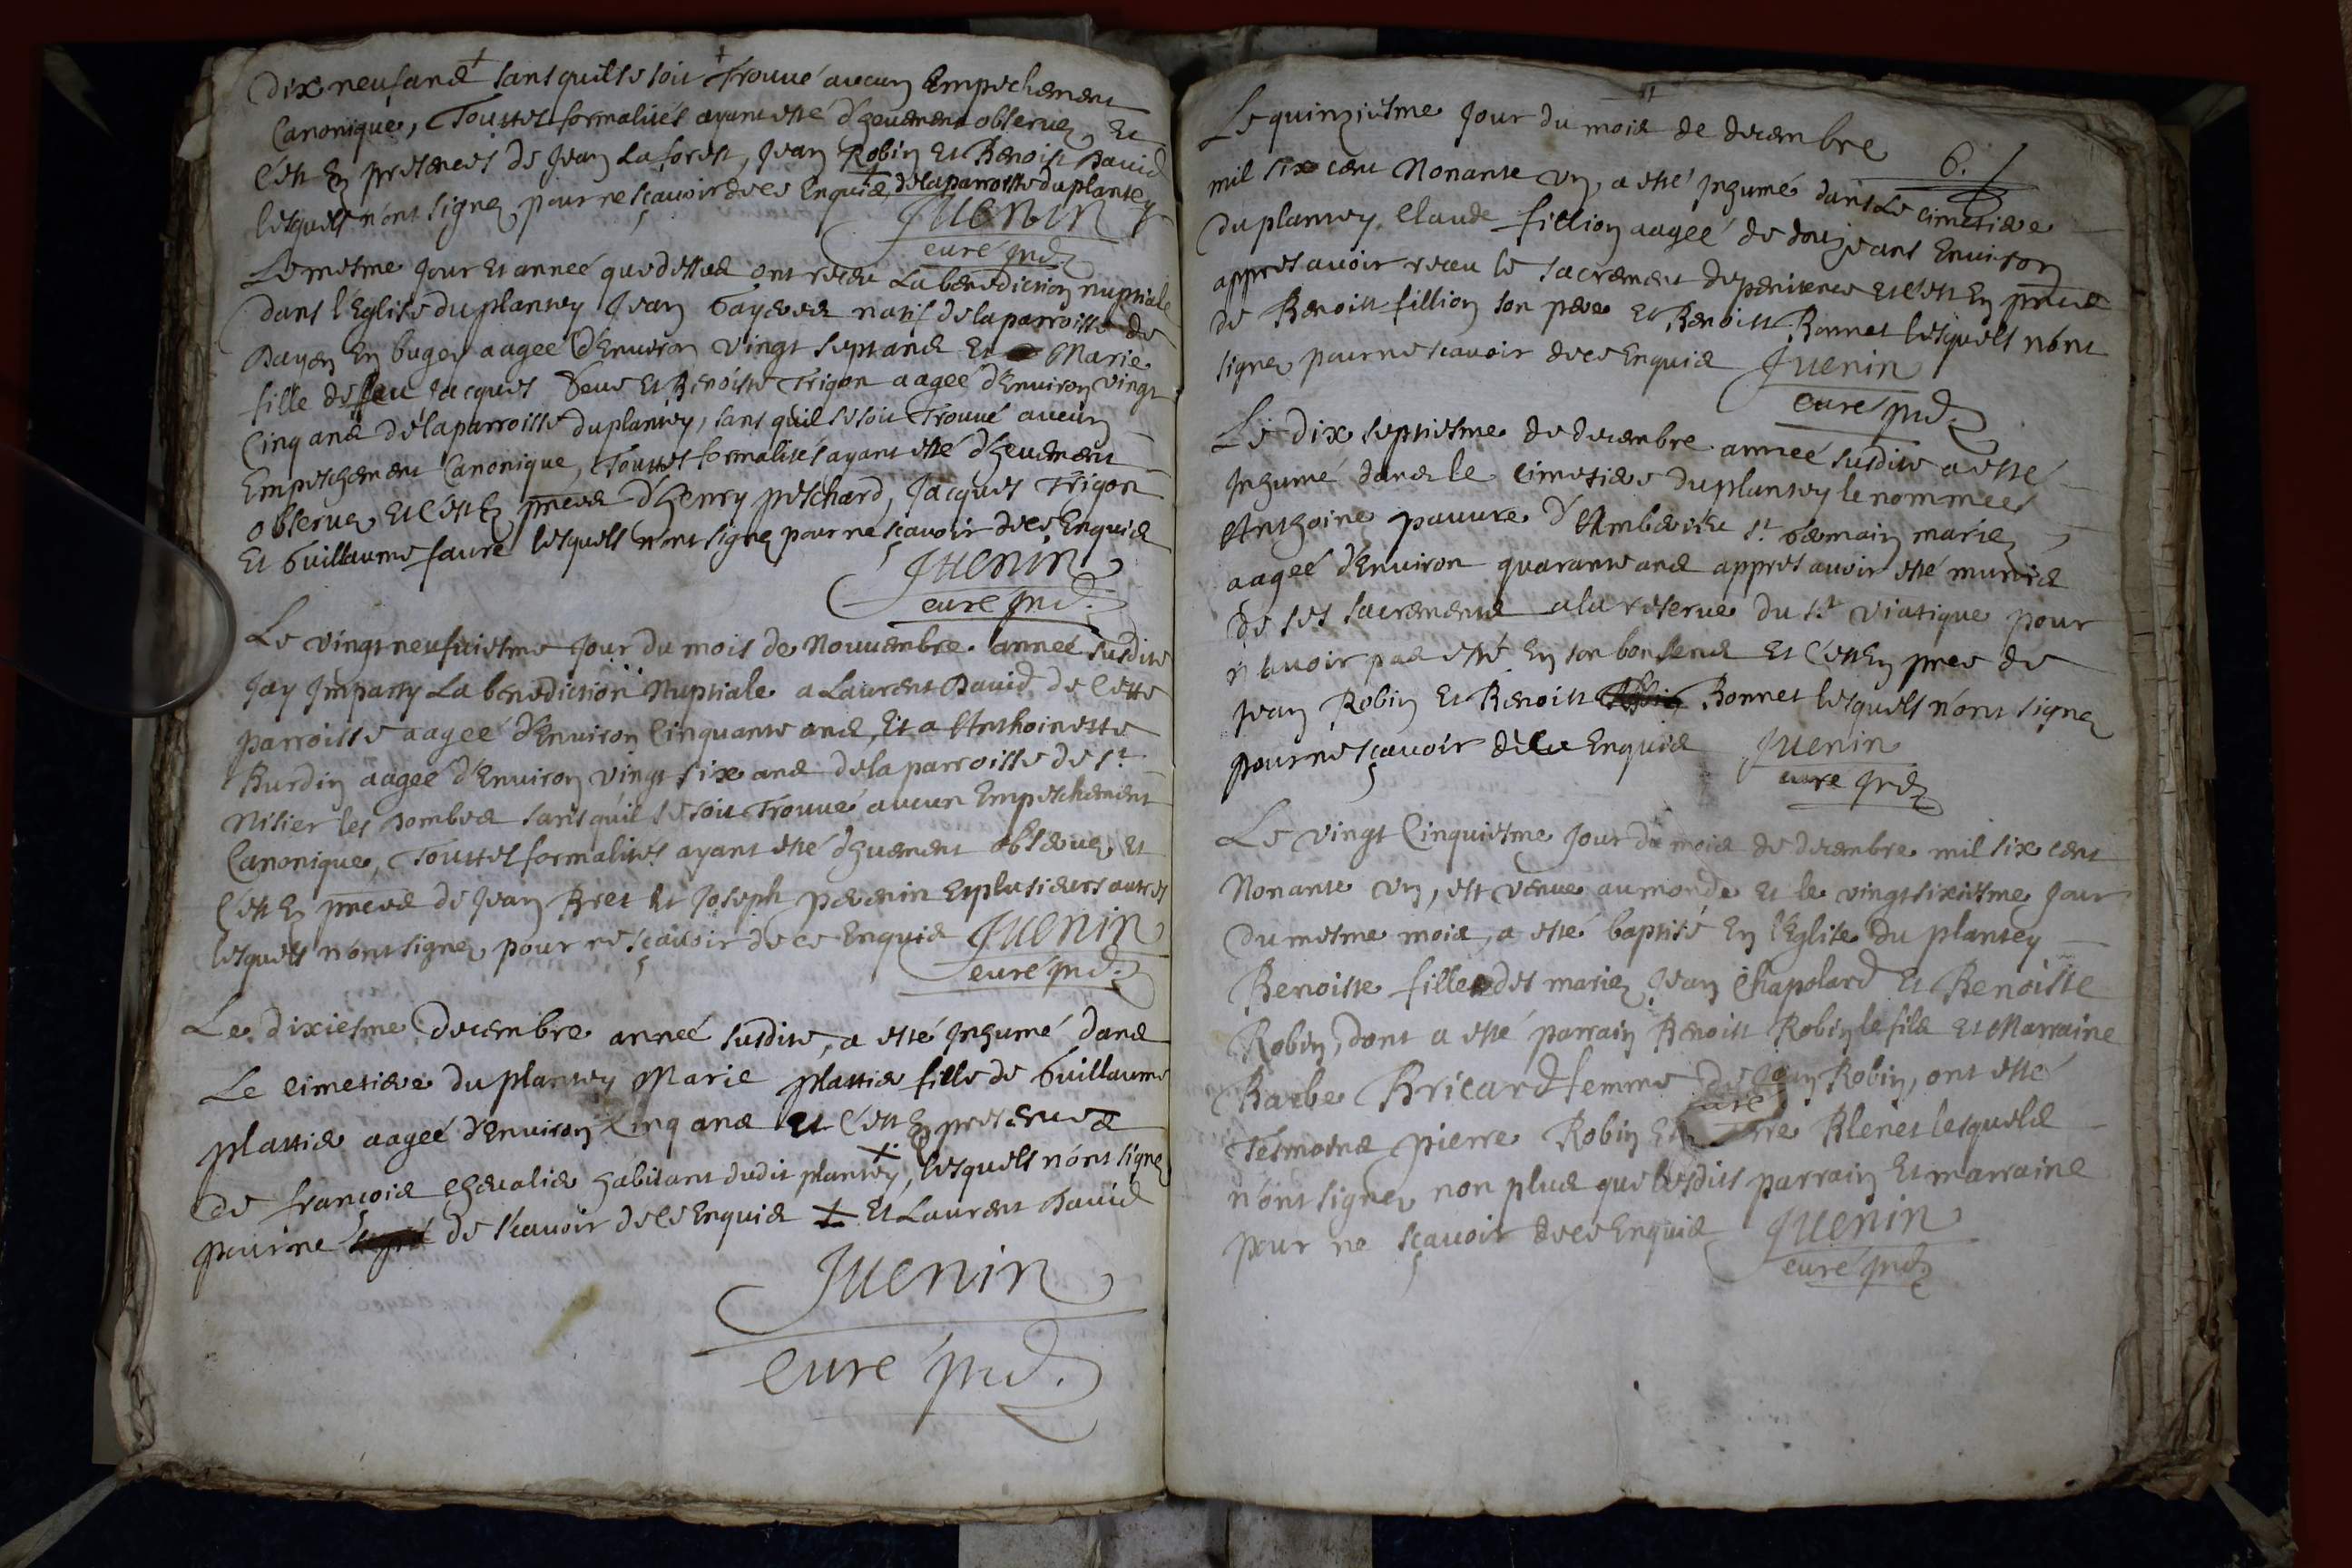 Dix neuf ans + sans quil se soit Trouué aucun Empechement
Canonique, Touttes formalités ayant esté dheuement obseruez, Et
C'est En presences de Jean Laforest, Jean Robin Et Benoist Dauid
lesquels n'ont signez pour ne sçauoir de ce Enquis + de la parroisse du plantey
Juenin
curé jnd.
Le mesme Jour Et anneé que dessus ont receu La benediction nuptiale
dans l'Eglise du plantey Jean natif de la parroisse de
En bugey aageé d'Enuiron Vingt sept ans Et Marie
fille de feu Jacques Et Benoiste Trigon aageé d'Enuiron Vingt
Cinq ans de la parroisse du plantey, sans quil se soit Trouué aucun
Empeschement Canonique, Touttes formalités ayant esté dheuement
obseruez Et C'est En pnces d'henry peschard, Jacques Trigon
Et Guillaume faure lesquels n'ont signez pour ne sçauoir de ce Enquis
Juenin
curé jnd.
Le vingt neufuiesme Jour du mois de Nouuembre anneé susdite
Jay Imparty La benediction Nuptiale a Laurent Dauid de Cette
parroisse aageé d'Enuiron Cinquante ans, Et a Anthoinette
Burdin aageé d'Enuiron vingt six ans de la parroisse de St
Nisier les Dombes sans quil se soit Trouué aucun Empeschement
Canonique, Touttes formalites ayant esté dhuement obseruez Et
C'est En pnces de Jean Bret Et Joseph peuenin Et plusieurs autres
lesquels n'ont signez pour ne sçauoir de ce Enquis Juenin
curé jnd.
Le dixiesme decembre anneé susdite, a esté Inhumé dans
Le cimetiere du plantey Marie plattier fille de Guillaume
plattier aageé d'Enuiron Cinq ans Et C'est En presences
de françois cheualier habitant dudit plantey, + lesquels n'ont signez
pour ne de sçauoir de ce Enquis + Et Laurent Dauid
Juenin
curé jnd.
6.
Le quinziesme Jour du mois de decembre
mil six cent Nonante un, a esté Inhumé dans Le cimetiere
du plantey Claude fillion aageé de douze ans Enuiron
appres auoir receu le sacrement de penitence et C'est En pnce
de Benoist fillion son pere Et Benoist Bonnet lesquels n'ont
signez pour ne scauoir de ce Enquis Juenin
curé jnd.
Le dix septiesme de decembre anneé susdite a esté
Inhumé dans le cimetiere du plantey le nommeé
Anthoine pauure d'Amberieu St Germain mariez,
aageé d'Enuiron quarante ans appres auoir esté munis
de ses sacrements a la reserue du St viatique pour
n'auoir pas esté En son bon sens Et C'est En pnce de
Jean Robin Et Benoist Bonnet lesquels n'ont signez
pour ne sçauoir de ce Enquis Juenin
curé jnd.
Le vingt Cinquiesme Jour du mois de decembre mil six cent
Nonante un, est venue au monde Et le vingt sixiesme Jour
du mesme mois, a esté baptisé En l'Eglise du plantey
Benoiste fille des mariez Jean Chapolard Et Benoiste
Robin, dont a esté parrain Benoist Robin le fils Et Marraine
Barbe Bricard femme de Jean Robin, ont esté
Tesmoins pierre Robin Et Blenet lesquels
n'ont signez non plus que lesdits parrain Et marraine
pour ne sçauoir de ce Enquis Juenin
curé jnd.